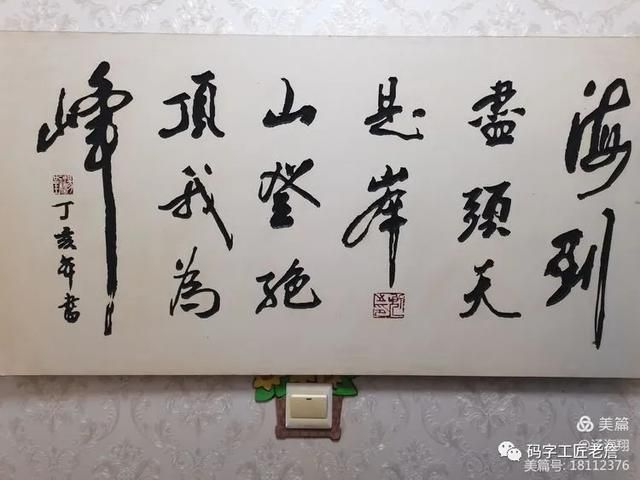 海到
盡頭天
是岸
山登絶
頂我為
峰
丁亥年書
美篇
码字工匠老詹
美篇号: 18112376